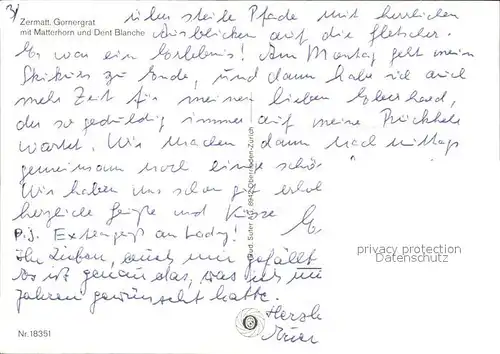 3)
über steile Pfade mit herrlichen
Zermatt, Gornergrat
mit Matterhorn und Dent Blanche
Ausblicken auf die Gletscher.
Es war ein Erlebnis! Am Montag geht mein
Skikurs zu Ende, und dann habe ich auch
mehr Zeit für meinen lieben Eberhard,
der so geduldig immer auf meine Rückkehr
wartet. Wir machen dann nachmittags
gemeinsam noch einige schö
Wir haben uns schon gut erhol
herzliche Grüße und Küsse
P.S. Extragruß an Lady!
Ihr Lieben, auch mir gefällt
Es ist genau das, was ich mir
Jahren gewünscht hatte.
Herzli
Euer
Rud. Suter AG, 8942 Oberrieden-Zürich
privacy protection
Datenschutz
Nr. 18351